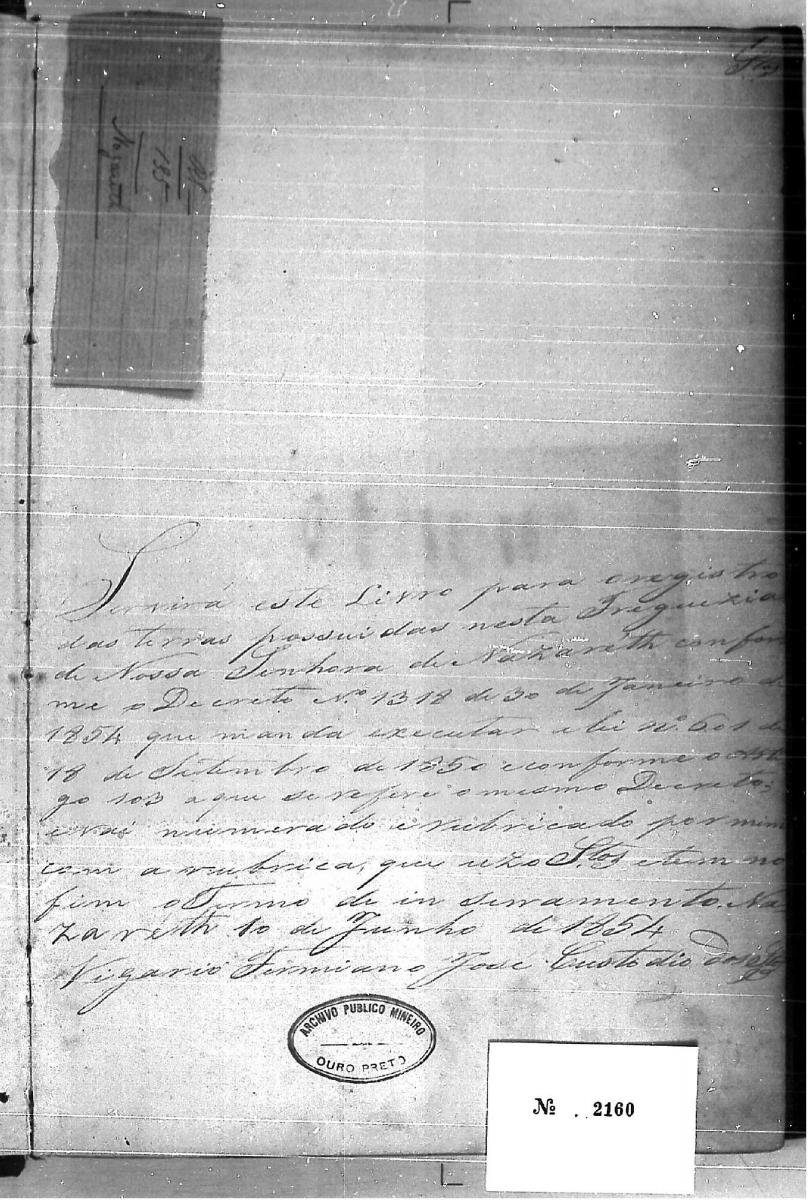 1
Stos
135
Nazareth
Servirá este Livro para o registro
das terras possuidas nesta Freguezia
de Nossa Senhora de Nazareth confor
me o Decreto N.º 1318 de 30 de Janeiro de
1854 que manda executar a lei nº. 601 de
18 de Setembro de 1850 e conforme o Arti
go 103 a que se refere o mesmo Decreto;
e vai numerado e rubricado por mim
com a rubrica, que uzo Stos e tem no
fim o Termo de in serramento. Na
zareth 10 de Junho de 1854
Vigario Firmiano Jose Custodio dos
ARCHIVO PUBLICO MINEIRO
OURO PRETO
Nº . 2160